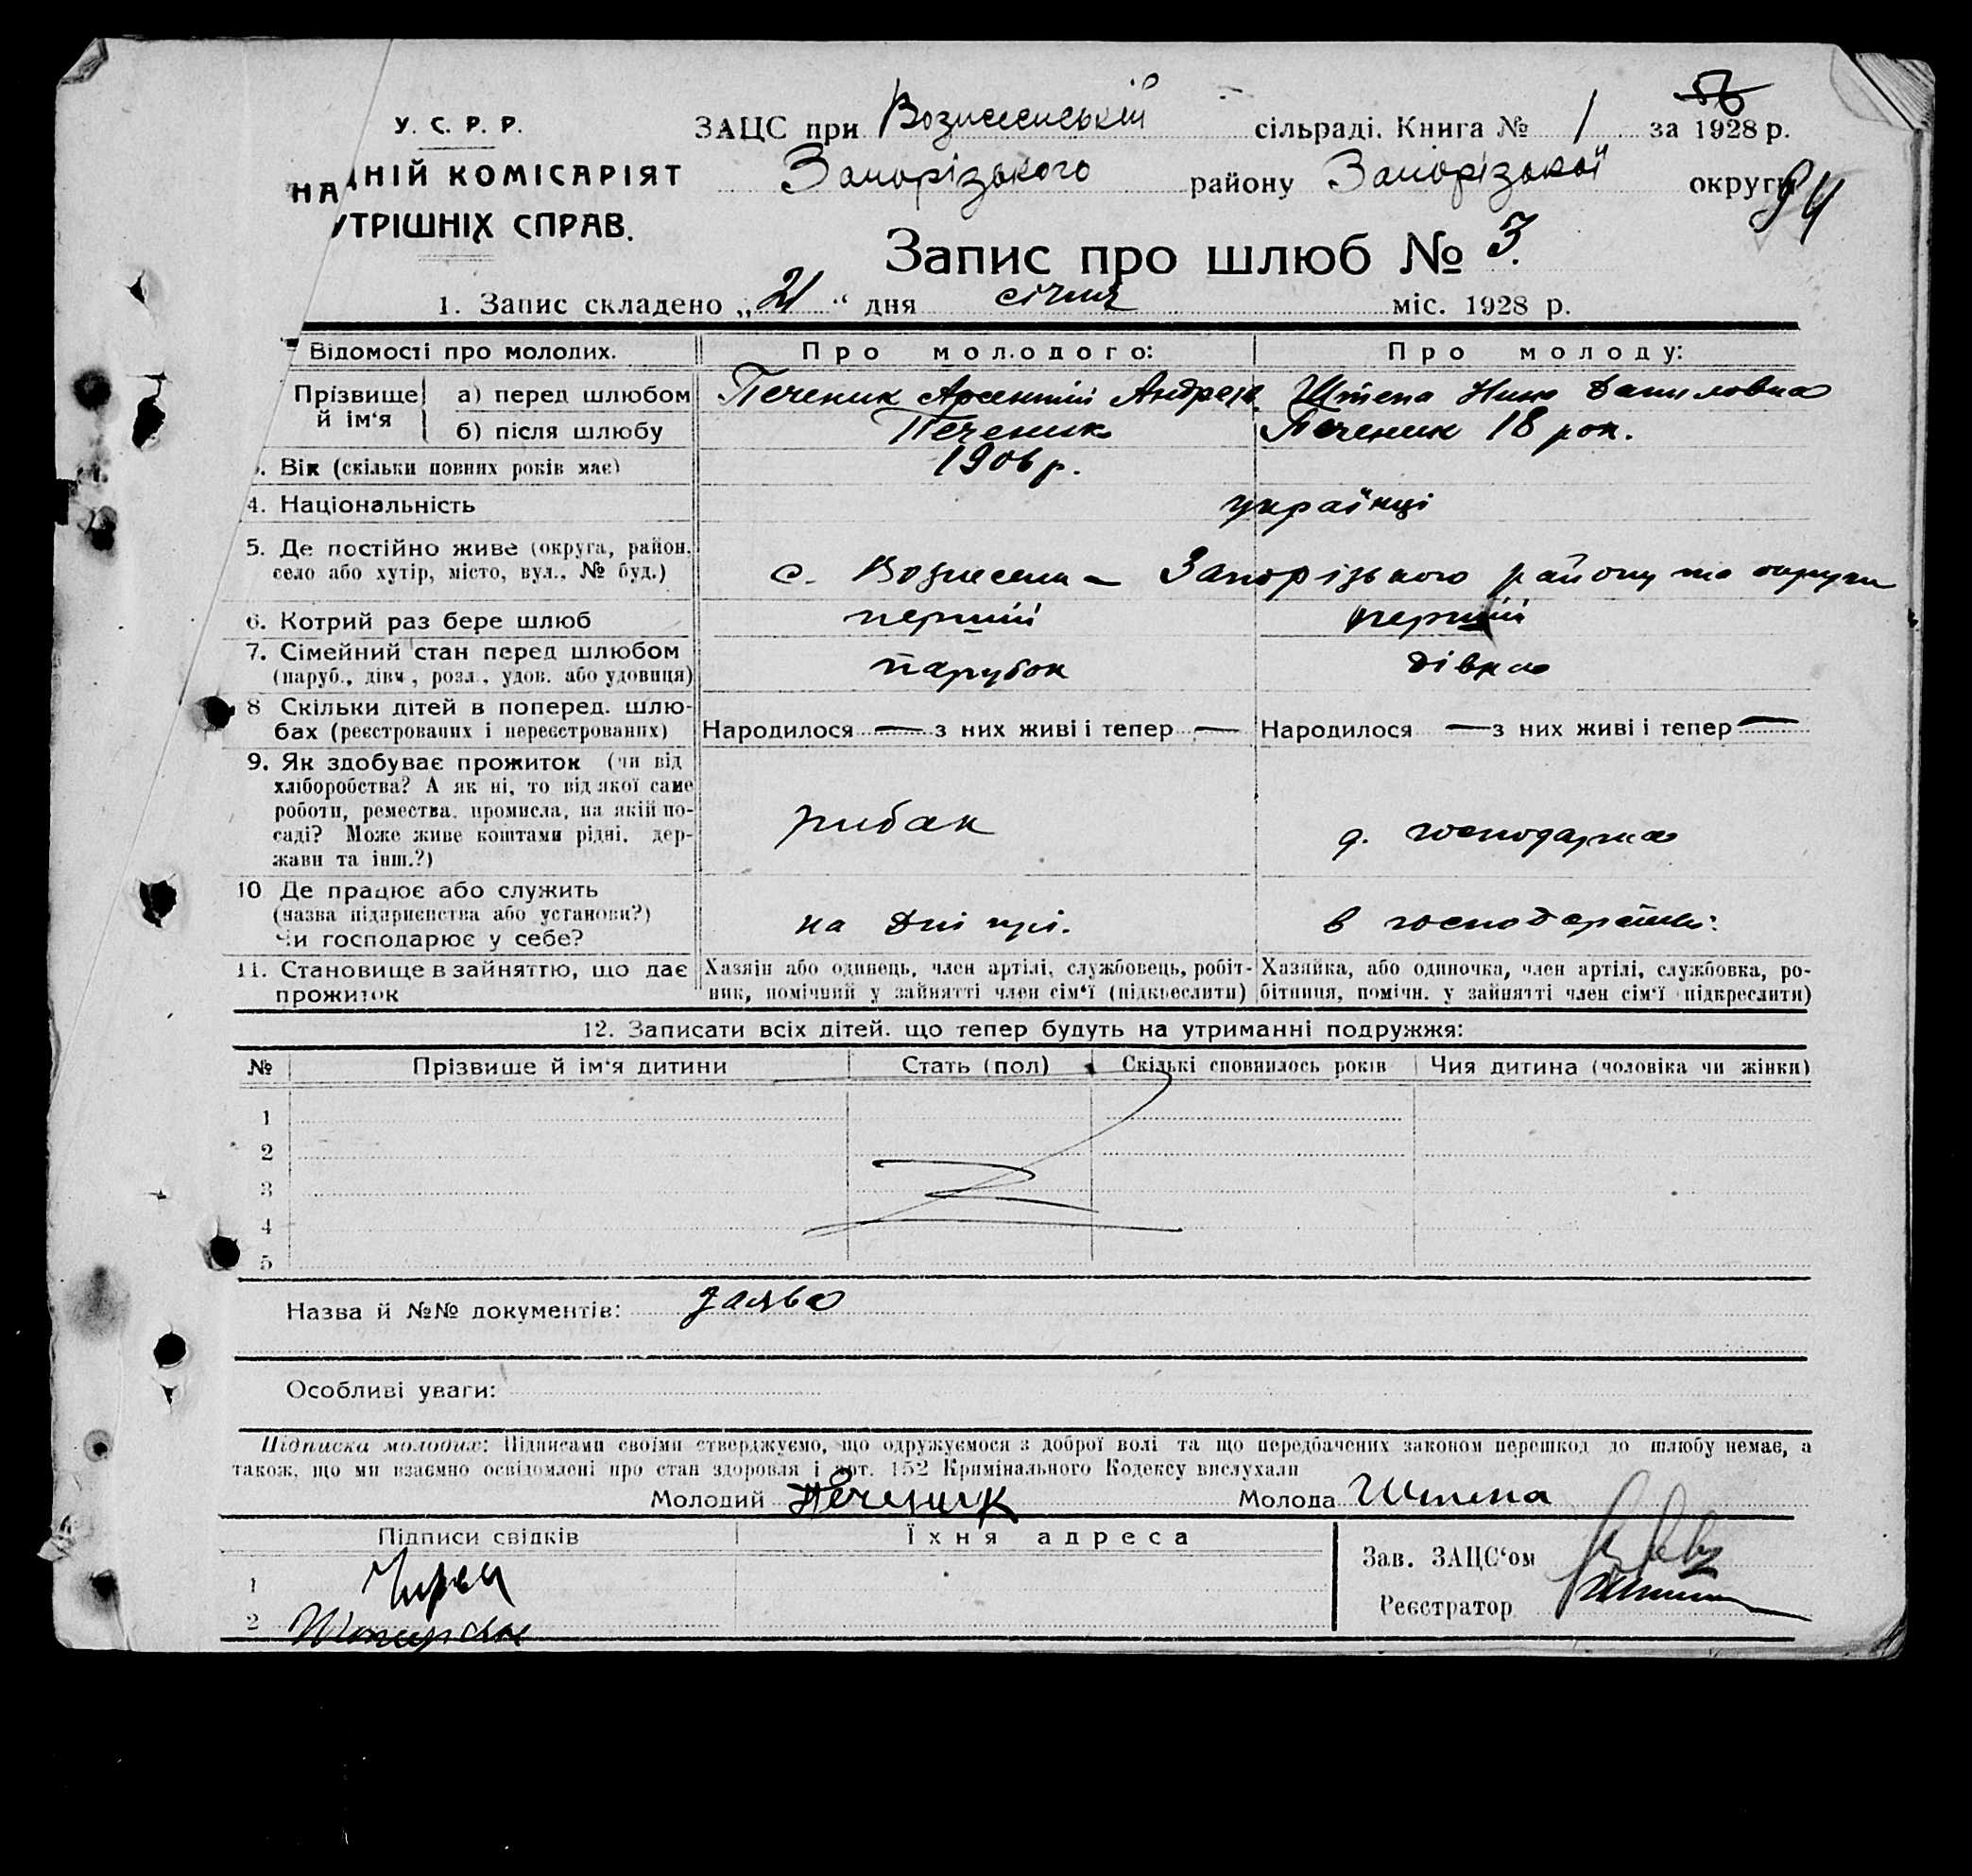 У. С. Р. Р.
НА НІЙ КОМІСАРІЯТ
УТРІШНІХ СПРАВ.
56
ЗАЦС при Вознесенській сільраді. Книга № 1 за 1928 р.
Запорізького району Запорізької округи
94
Запис про шлюб № 3.
1. Запис складено „21“ дня січня міс. 1928 р.
Відомості про молодих. Про молодого: Про молоду:
Прізвище й ім‘я а) перед шлюбом Печеник Арсентій Андреїв. Штепа Нина Даниловна
б) після шлюбу Печеник Печеник 18 рок.
. Вік (скільки повних років має) 1906 р.
4. Національність українці
5. Де постійно живе (округа, район,
село або хутір, місто, вул., № буд.) с. Вознесенка – Запорізького району та округи
6. Котрий раз бере шлюб перший перший
7. Сімейний стан перед шлюбом
(паруб., дівч., розл., удов. або удовиця) парубок дівка
8 Скільки дітей в поперед. шлю-
бах (реєстрованих і нереєстрованих) Народилося — з них живі і тепер — Народилося — з них живі і тепер —
9. Як здобуває прожиток (чи від
хліборобства? А як ні, то від якої саме
роботи, ремества, промисла, на якій по-
саді? Може живе коштами рідні, дер-
жави та інш.?) рибак д. господарка
10 Де працює або служить
(назва підприєнства або установи?)
Чи господарює у себе? на Дніпрі. в господарстві.
11. Становище в зайняттю, що дає
прожиток
Хазяїн або одинець, член артілі, службовець, робіт-
ник, помічний у зайнятті член сім‘ї (підкреслити)
Хазяйка, або одиночка, член артілі, службовка, ро-
бітниця, помічн. у зайнятті член сім‘ї підкреслити)
12. Записати всіх дітей. що тепер будуть на утриманні подружжя:
№ Прізвище й ім‘я дитини Стать (пол) Скількі сповнилось років Чия дитина (чоловіка чи жінки)
1
2
3
4
5
Назва й №№ документів: заява
Особливі уваги:
Підписка молодих: Підписами своїми стверджуємо, що одружуємося з доброї волі та що передбачених законом перешкод до шлюбу немає, а
також, що ми взаємно освідомлені про стан здоровля і арт. 152 Кримінального Кодексу вислухали
Молодий Печеник Молода Штепа
Підписи свідків Їхня адреса
Зав. ЗАЦС‘ом
1
Реєстратор
2